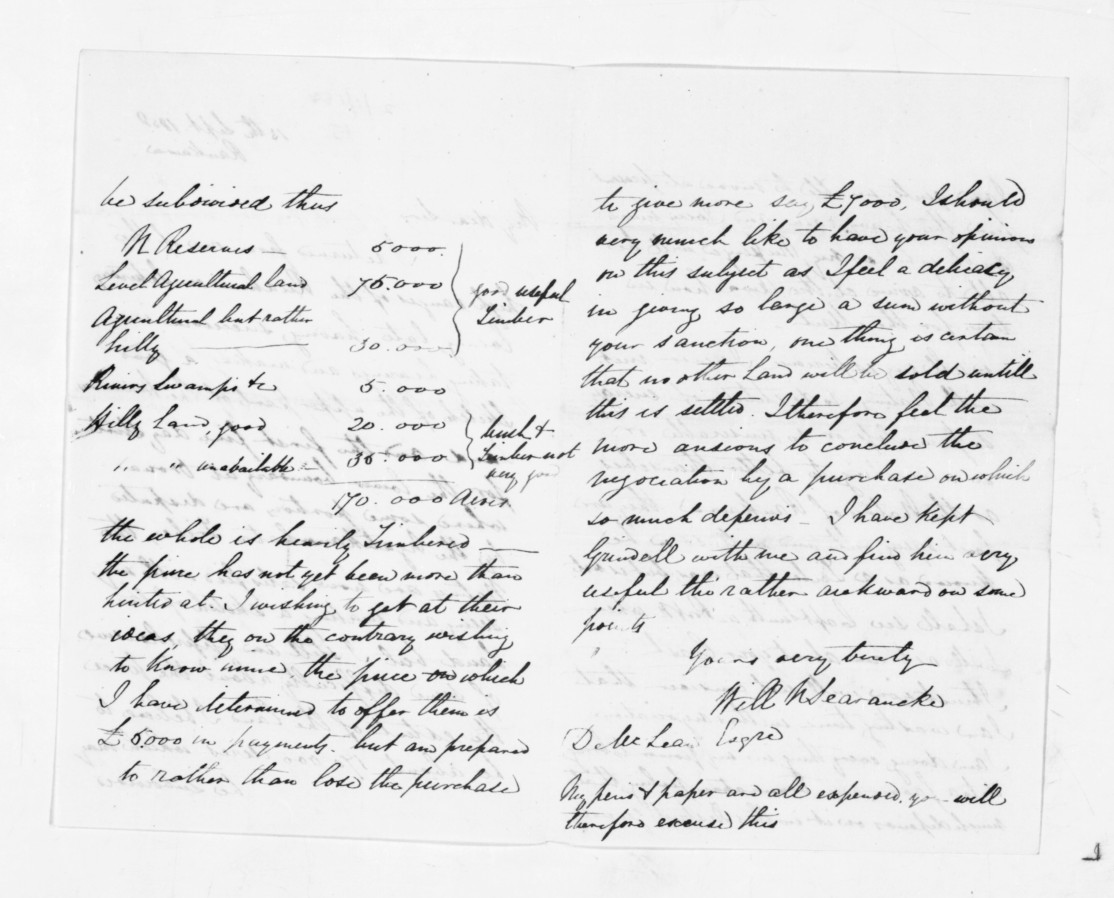 be subdivided thus
N Reserves — 5000.
Level Agricultural land 75.000 good useful
Agricultural but rather Timber
hilly —— 30.000
Rivers Swamps &c 5.000
Hilly Land, good 20.000 bush &
" " unavailable — 35.000 Timber not
very good
170.000 Acres
the whole is heavily Timbered —
the price has not yet been more than
hinted at. I wishing to get at their
ideas, they on the contrary wishing
to know mine, the price on which
I have determined to offer them is
£5000 in payments. but am prepared
to rather than lose the purchase
to give more say £7000, I should
very much like to have your opinion
on this subject as I feel a delicacy
in giving so large a sum without
your sanction, one thing is certain
that no other Land will be sold untill
this is settled. I therefore feel the
more anxious to conclude the
negociation by a purchase on which
so much depends — I have kept
Grindell with me and find him very
useful tho' rather awkward on some
points
Yours very truly
Will N Searancke
D. McLean Esqre
My pens & paper are all expended. you will
therefore excuse this